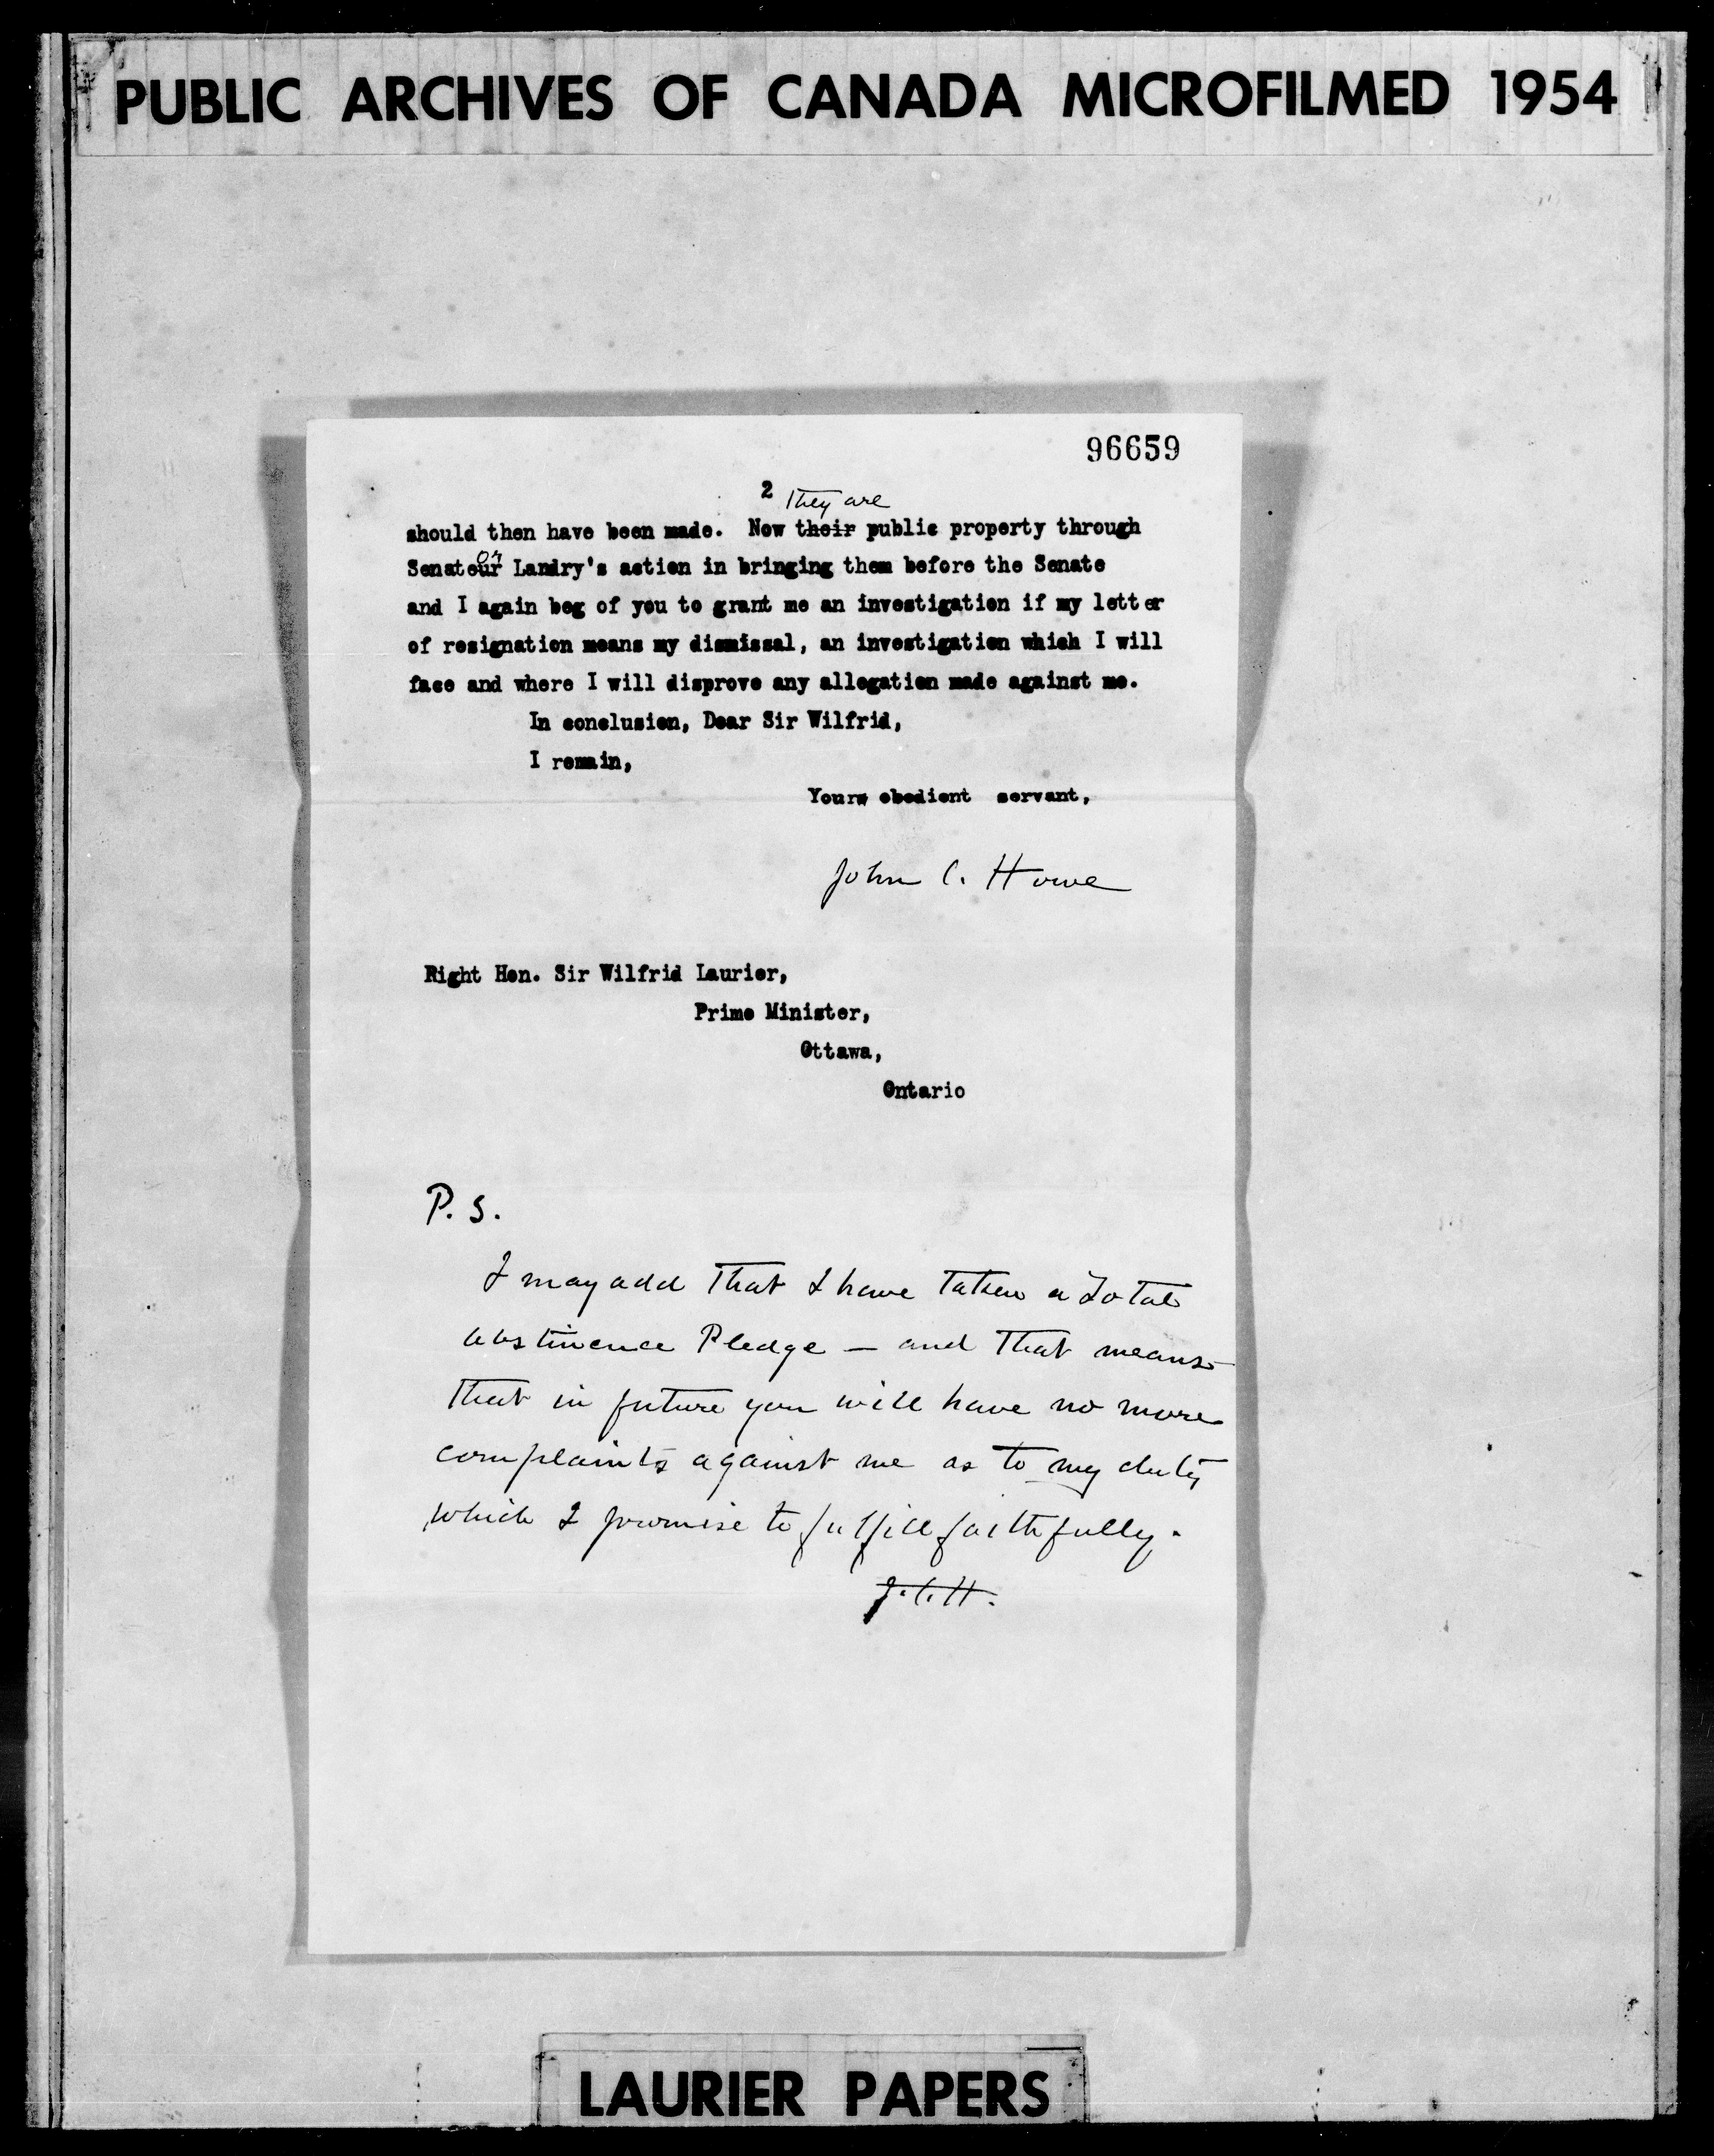 PUBLIC ARCHIVES OF CANADA MICROFILMED 1954
96659
2
They are
should then have been made. Now their public property through
or
Senateur Landry's action in bringing them before the Senate
and I again beg of you to grant me an investigation if my letter
of resignation means my dismissal, an investigation which I will
face and where I will disprove any allegation made against me.
In conclusion, Dear Sir Wilfrid,
I remain,
Yours obedient servant,
John C. Howe
Right Hon. Sir Wilfrid Laurier,
Prime Minister,
Ottawa,
Ontario
P. S.
I may add that I have taken a Total
abstinence Pledge — and that means
that in future you will have no more
complaints against me as to my duty
which I promise to fulfill faithfully.
J.C.H.
LAURIER PAPERS